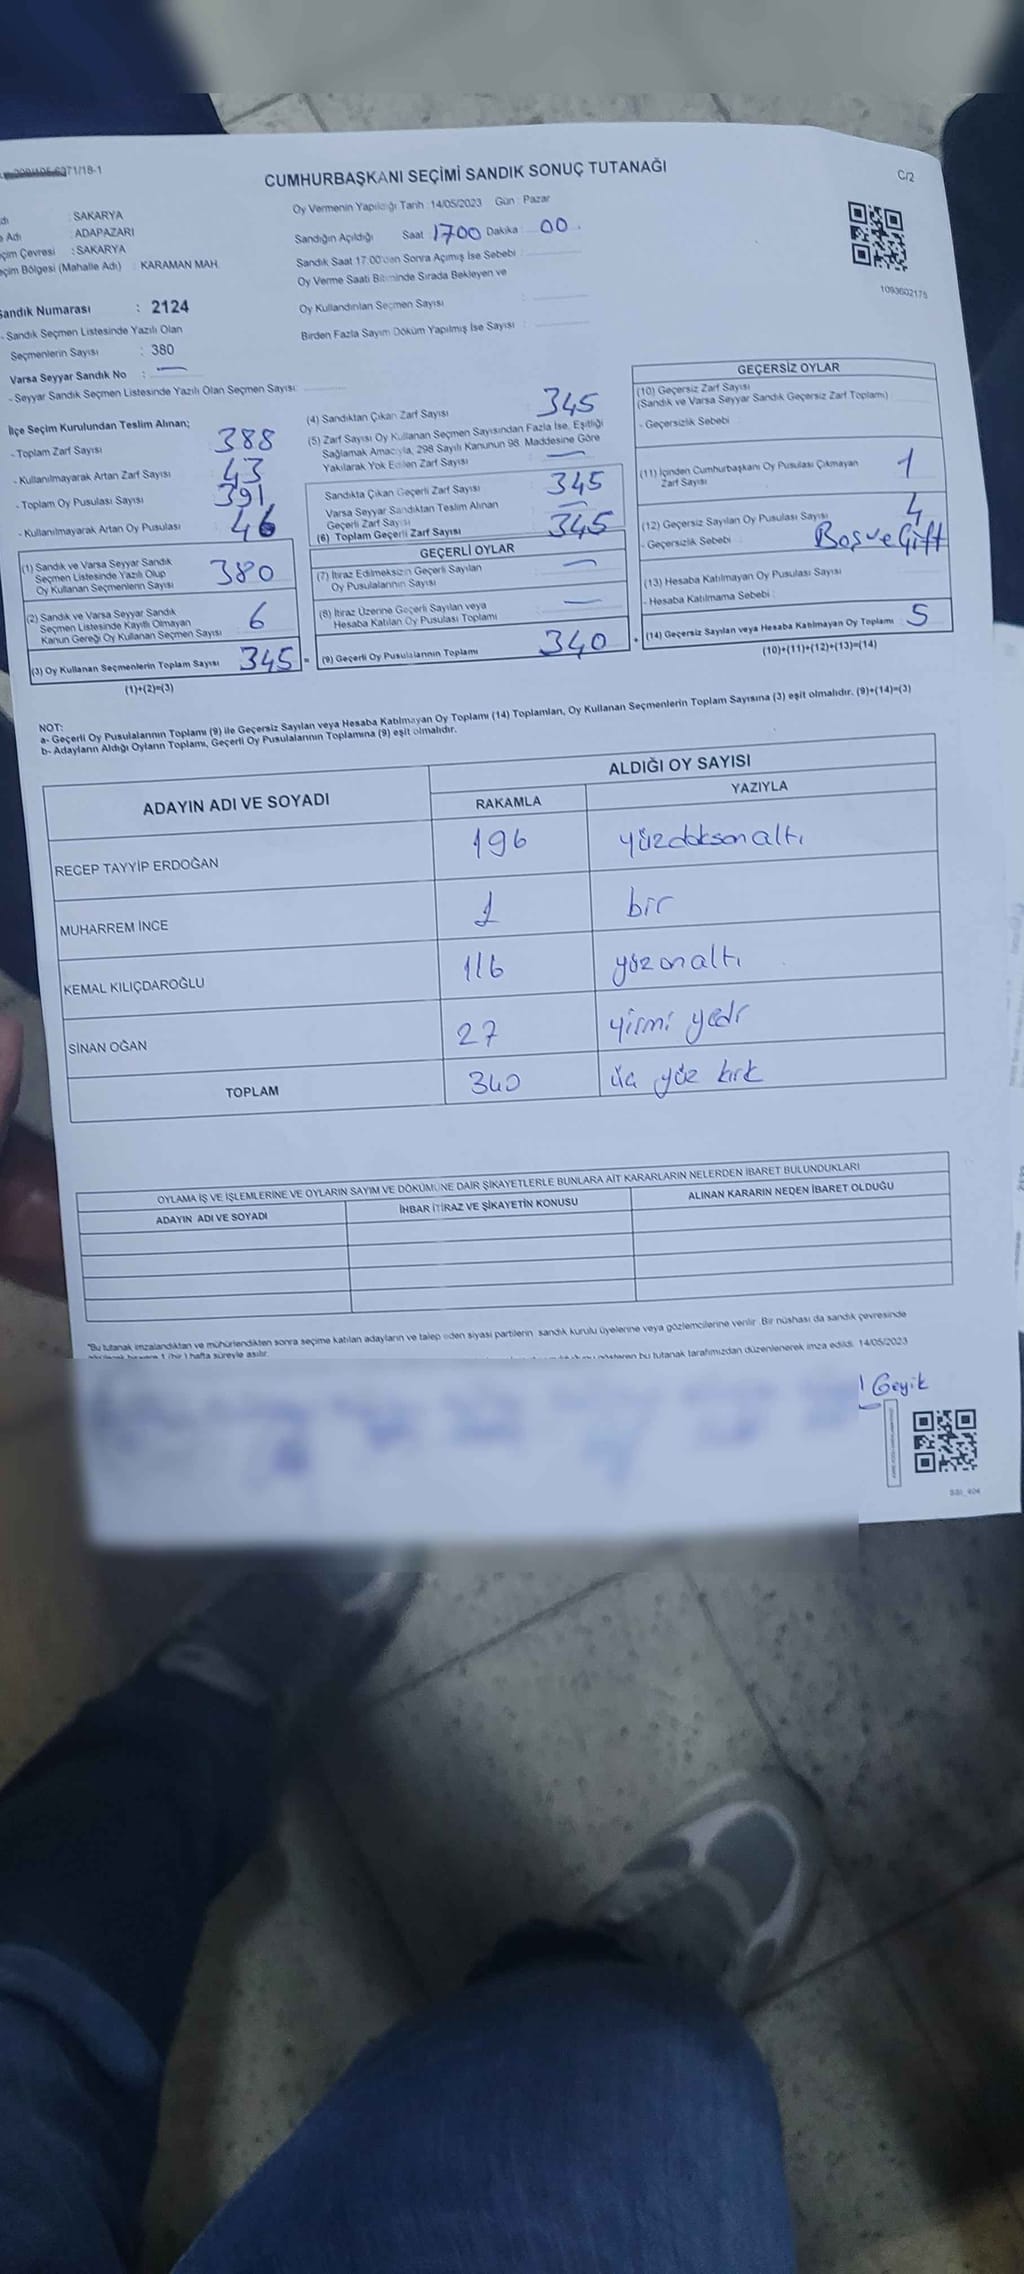 371/18-1
CUMHURBAŞKANI SEÇİMİ SANDIK SONUÇ TUTANAĞI
C/2
: SAKARYA
Adı : ADAPAZARI
çim Çevresi : SAKARYA
eçim Bölgesi (Mahalle Adı) : KARAMAN MAH.
Sandık Numarası : 2124
- Sandık Seçmen Listesinde Yazılı Olan
Seçmenlerin Sayısı : 380
Varsa Seyyar Sandık No : —
- Seyyar Sandık Seçmen Listesinde Yazılı Olan Seçmen Sayısı:
Oy Vermenin Yapıldığı Tarih :14/05/2023 Gün : Pazar
Sandığın Açıldığı Saat 1700 Dakika 00.
Sandık Saat 17.00'den Sonra Açımış İse Sebebi :
Oy Verme Saati Bitiminde Sırada Bekleyen ve
Oy Kullandırılan Seçmen Sayısı :
Birden Fazla Sayım Döküm Yapılmış İse Sayısı :
1093602175
İlçe Seçim Kurulundan Teslim Alınan;
- Toplam Zarf Sayısı 388
- Kullanılmayarak Artan Zarf Sayısı 43
- Toplam Oy Pusulası Sayısı 391
- Kullanılmayarak Artan Oy Pusulası 46
(1) Sandık ve Varsa Seyyar Sandık
Seçmen Listesinde Yazılı Olup
Oy Kullanan Seçmenlerin Sayısı 380
(2) Sandık ve Varsa Seyyar Sandık
Seçmen Listesinde Kayıtlı Olmayan
Kanun Gereği Oy Kullanan Seçmen Sayısı 6
(3) Oy Kullanan Seçmenlerin Toplam Sayısı 345 =
(1)+(2)=(3)
(4) Sandıktan Çıkan Zarf Sayısı 345
(5) Zarf Sayısı Oy Kullanan Seçmen Sayısından Fazla İse, Eşitliği
Sağlamak Amacıyla, 298 Sayılı Kanunun 98. Maddesine Göre
Yakılarak Yok Edilen Zarf Sayısı —
Sandıkta Çıkan Geçerli Zarf Sayısı 345
Varsa Seyyar Sandıktan Teslim Alınan
Geçerli Zarf Sayısı —
(6) Toplam Geçerli Zarf Sayısı 345
GEÇERLİ OYLAR
(7) İtiraz Edilmeksizin Geçerli Sayılan
Oy Pusulalarının Sayısı —
(8) İtiraz Üzerine Geçerli Sayılan veya
Hesaba Katılan Oy Pusulası Toplamı —
(9) Geçerli Oy Pusulalarının Toplamı 340 +
GEÇERSİZ OYLAR
(10) Geçersiz Zarf Sayısı
(Sandık ve Varsa Seyyar Sandık Geçersiz Zarf Toplamı)
- Geçersizlik Sebebi
(11) İçinden Cumhurbaşkanı Oy Pusulası Çıkmayan
Zarf Sayısı 1
(12) Geçersiz Sayılan Oy Pusulası Sayısı 4
- Geçersizlik Sebebi Boş ve Çift
(13) Hesaba Katılmayan Oy Pusulası Sayısı
- Hesaba Katılmama Sebebi
(14) Geçersiz Sayılan veya Hesaba Katılmayan Oy Toplamı 5
(10)+(11)+(12)+(13)=(14)
NOT:
a- Geçerli Oy Pusulalarının Toplamı (9) ile Geçersiz Sayılan veya Hesaba Katılmayan Oy Toplamı (14) Toplamları, Oy Kullanan Seçmenlerin Toplam Sayısına (3) eşit olmalıdır. (9)+(14)=(3)
b- Adayların Aldığı Oyların Toplamı, Geçerli Oy Pusulalarının Toplamına (9) eşit olmalıdır.
ADAYIN ADI VE SOYADI
ALDIĞI OY SAYISI
RAKAMLA YAZIYLA
RECEP TAYYİP ERDOĞAN 196 yüzdoksan altı
MUHARREM İNCE 1 bir
KEMAL KILIÇDAROĞLU 116 yüz on altı
SİNAN OĞAN 27 yirmi yedi
TOPLAM 340 üç yüz kırk
OYLAMA İŞ VE İŞLEMLERİNE VE OYLARIN SAYIM VE DÖKÜMÜNE DAİR ŞİKAYETLERLE BUNLARA AİT KARARLARIN NELERDEN İBARET BULUNDUKLARI
ADAYIN ADI VE SOYADI İHBAR İTİRAZ VE ŞİKAYETİN KONUSU ALINAN KARARIN NEDEN İBARET OLDUĞU
"Bu tutanak imzalandıktan ve mühürlendikten sonra seçime katılan adayların ve talep eden siyasi partilerin sandık kurulu üyelerine veya gözlemcilerine verilir. Bir nüshası da sandık çevresinde
1 (bir) hafta süreyle asılır. gösteren bu tutanak tarafımızdan düzenlenerek imza edildi. 14/05/2023
Geyik